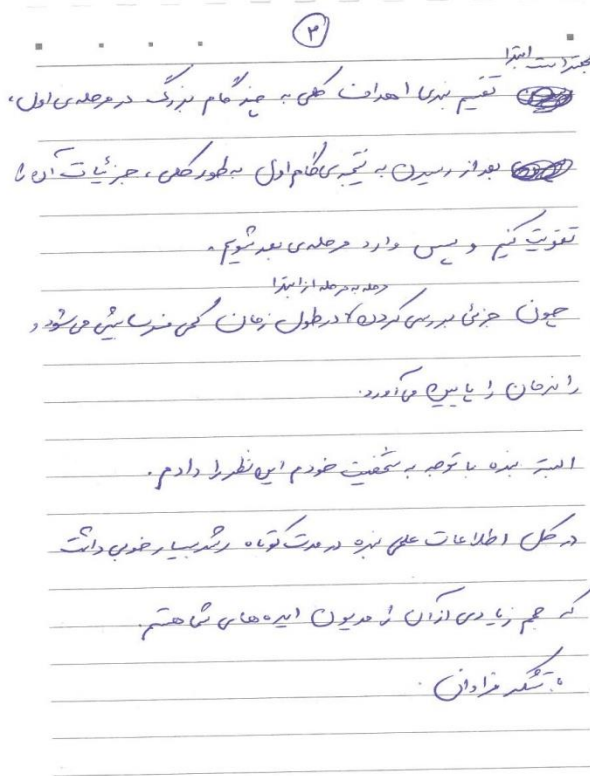 ۳
بهتر است ابتدا
تقسیم بندی اهداف کلی به چند گام بزرگ در مرحله‌ی اول،
بعد از رسیدن به نتیجه‌ی گام اول به طور کلی، جزئیات آن را
تقویت کنیم و سپس وارد مرحله‌ی بعد شویم.
مرحله به مرحله از ابتدا
چون جزئی بررسی کردن در طول زمان کمی فرسایشی می‌شود و
راندمان را پایین می‌آورد.
البته بنده با توجه به شخصیت خودم این نظر را دادم.
در کل اطلاعات علمی بنده در مدت کوتاه رشد بسیار خوبی داشت
که حجم زیادی از آن را مدیون ایده‌های شما هستم.
با تشکر فراوان.